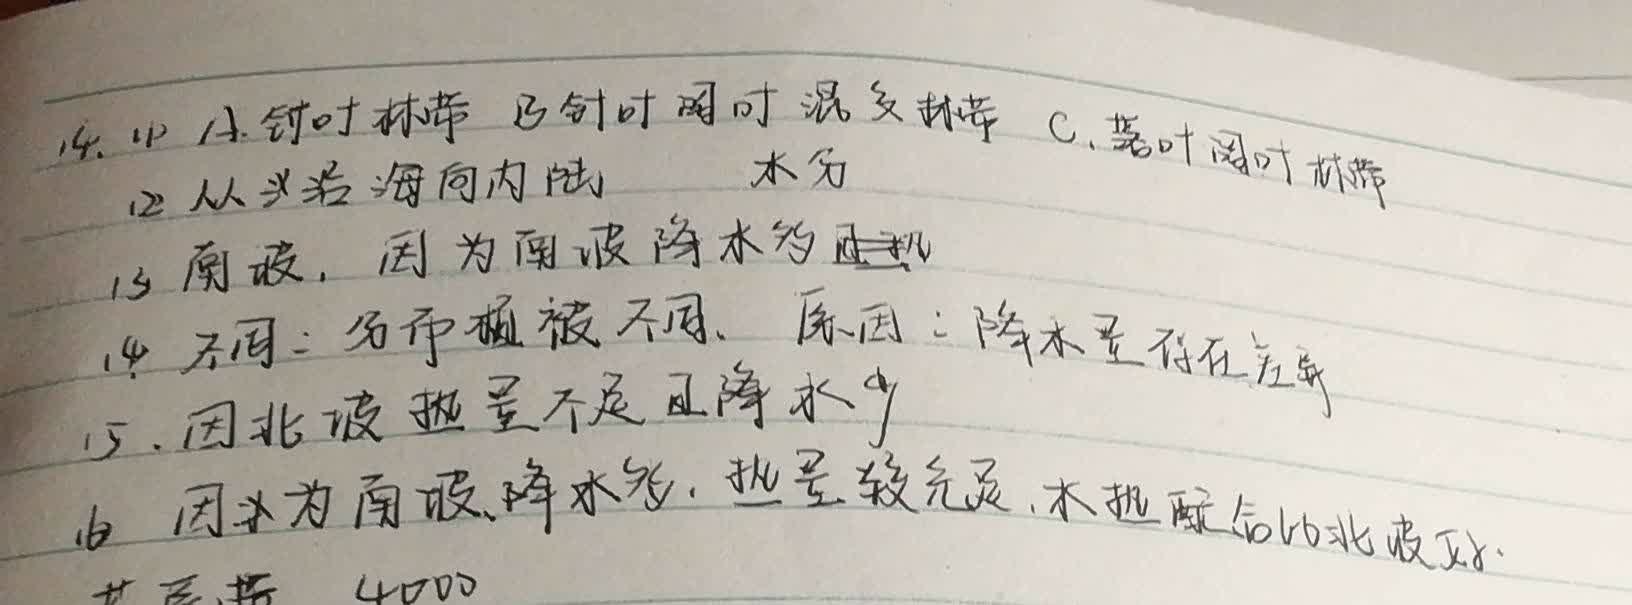 14. (1) A. 针叶林带 B 针叶阔叶混交林带 C. 落叶阔叶林带
(2) 从沿海向内陆 水分
(3) 南坡. 因为南坡降水多
(4) 不同: 分布植被不同. 原因: 降水量存在差异
(5). 因北坡热量不足且降水少
(6) 因为南坡降水多. 热量较充足. 水热配合比北坡好.
4000